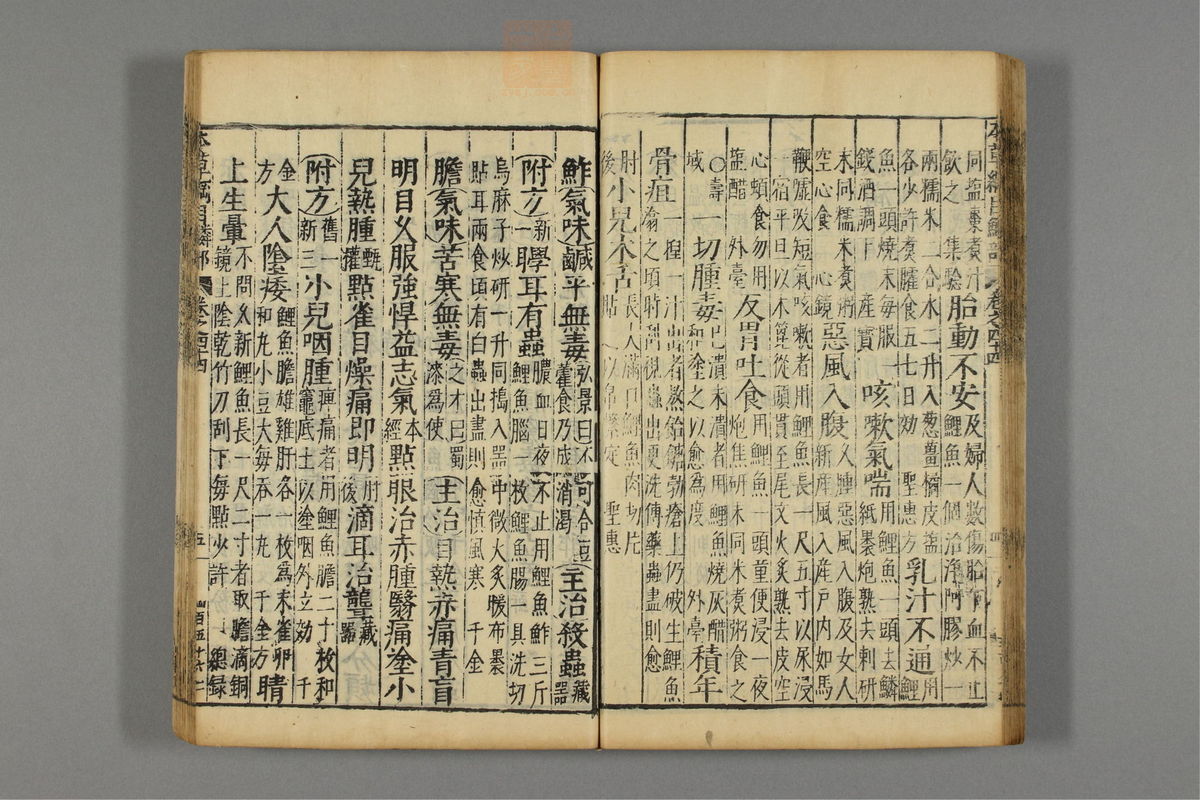 同鹽棗煮汁
飲之 集驗 胎動不安 及婦人數傷胎下血不止
兩糯米一合水二升入葱薑橘皮鹽 鯉魚一個治淨阿膠炒一
各少許煮臛食五七日効 聖惠方 乳汁不通 用鯉
魚一頭燒末每服一 咳嗽氣喘 用鯉魚一頭去鱗
錢酒調下 産寶 紙褁炮熟去刺研
末同糯米煮粥
空心食 心鏡 惡風入腹 久腫惡風入腹及女人
新産風入産戶内如馬
鞭噓吸短氣咳嗽者用鯉魚長一尺五寸以尿浸
一宿平旦以木篦從頭貫至尾文火炙熟去皮空
心頓食勿用
鹽醋 外臺 反胃吐食 用鯉魚一頭童便浸一夜
炮焦研末同米煮粥食之
○壽 一切腫毒 已潰未潰者用鯉魚燒灰醋
域 和塗之以愈為度 外臺 積年
骨疽 一捏一汁出者熬飴餹勃瘡上仍破生鯉魚
搶之頃時刮視蟲出更洗傅藥蟲盡則愈
肘
後 小兒木舌 長大滿口鯉魚肉切片
貼之以帛繫定 聖惠
鮓 氣味 鹹平無毒 弘景曰不可合豆
藿食乃成消渴 主治 殺蟲 藏
器
附方 新
一 聤耳有蟲 膿血日夜不止用鯉魚鮓三斤
鯉魚腦一枚鯉魚腸一具洗切
烏麻子炒研一升同搗入器中微火炙暖布褁
貼耳兩食頃有白蟲出盡則愈慎風寒 千金
膽 氣味 苦寒無毒 之才曰蜀
漆為使 主治 目熱赤痛青盲
明目久服強悍益志氣 本
經 點眼治赤腫翳痛塗小
兒熱腫 甄
權 點雀目燥痛即明 肘
後 滴耳治聾 藏
器
附方 舊一
新三 小兒咽腫 痺痛者用鯉魚膽二寸枚和
竈底土以塗咽外立効 千
金
方 大人陰痿 鯉魚膽雄雞肝各一枚為末雀卵
和丸小豆大每吞一丸 千金方 睛
上生暈 不問久新鯉魚長一尺二寸者取膽滴銅
鏡上陰乾竹刀刮下每點少許 總録